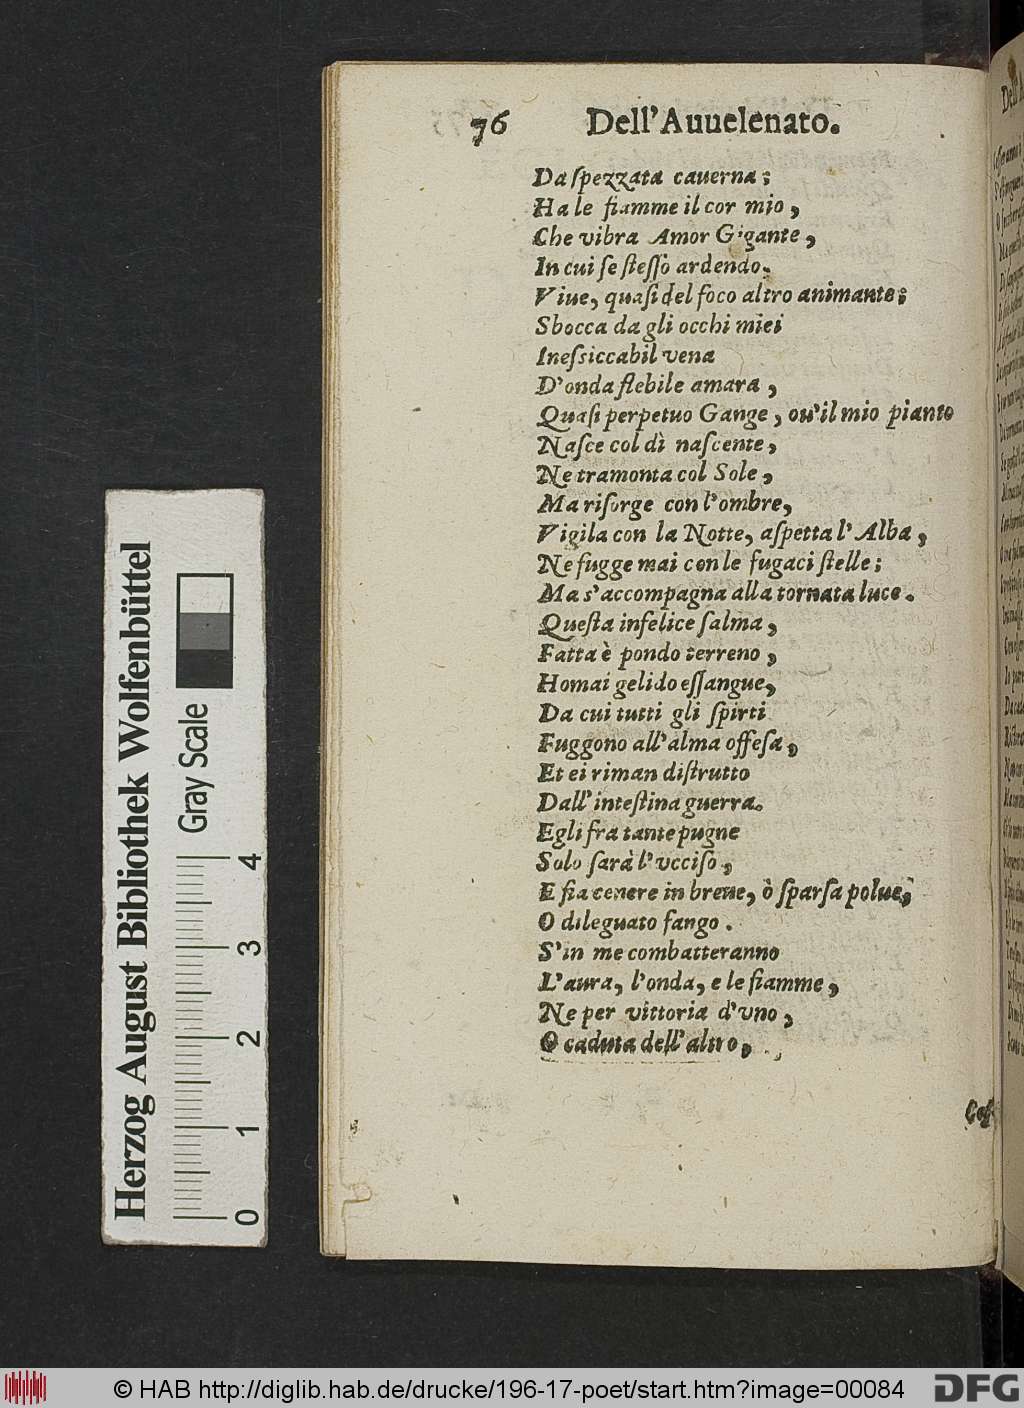 76 Dell'Auuelenato.
Da ſpezzata cauerna;
Ha le fiamme il cor mio,
Che vibra Amor Gigante,
In cui ſe ſteſſo ardendo.
Viue, quaſi del foco altro animante;
Sbocca da gli occhi miei
Ineſsiccabil vena
D'onda flebile amara,
Quaſi perpetuo Gange, ou'il mio pianto
Naſce col dì naſcente,
Ne tramonta col Sole,
Ma riſorge con l'ombre,
Vigila con la Notte, aſpetta l'Alba,
Ne fugge mai con le fugaci ſtelle;
Ma s'accompagna alla tornata luce.
Queſta infelice ſalma,
Fatta è pondo terreno,
Homai gelido eſſangue,
Da cui tutti gli ſpirti
Fuggono all'alma offeſa,
Et ei riman diſtrutto
Dall'inteſtina guerra.
Egli fra tante pugne
Solo ſarà l'vcciſo,
E fia cenere in breue, ò ſparſa polue,
O dileguato fango.
S'in me combatteranno
L'aura, l'onda, e le fiamme,
Ne per vittoria d'vno,
O caduta dell'altro,
Herzog August Bibliothek Wolfenbüttel
Gray Scale
0 1 2 3 4
© HAB http://diglib.hab.de/drucke/196-17-poet/start.htm?image=00084
DFG